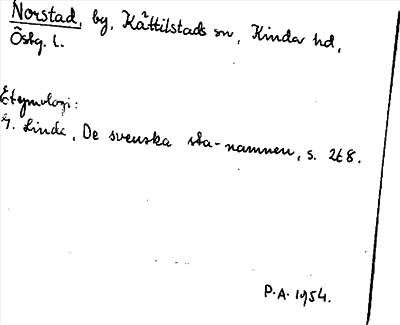 Norstad, by, Kättilstads sn, Kinda hd,
Östg. l.
Etymologi:
G. Linde, De svenska sta-namnen, s. 268.
P.A. 1954.